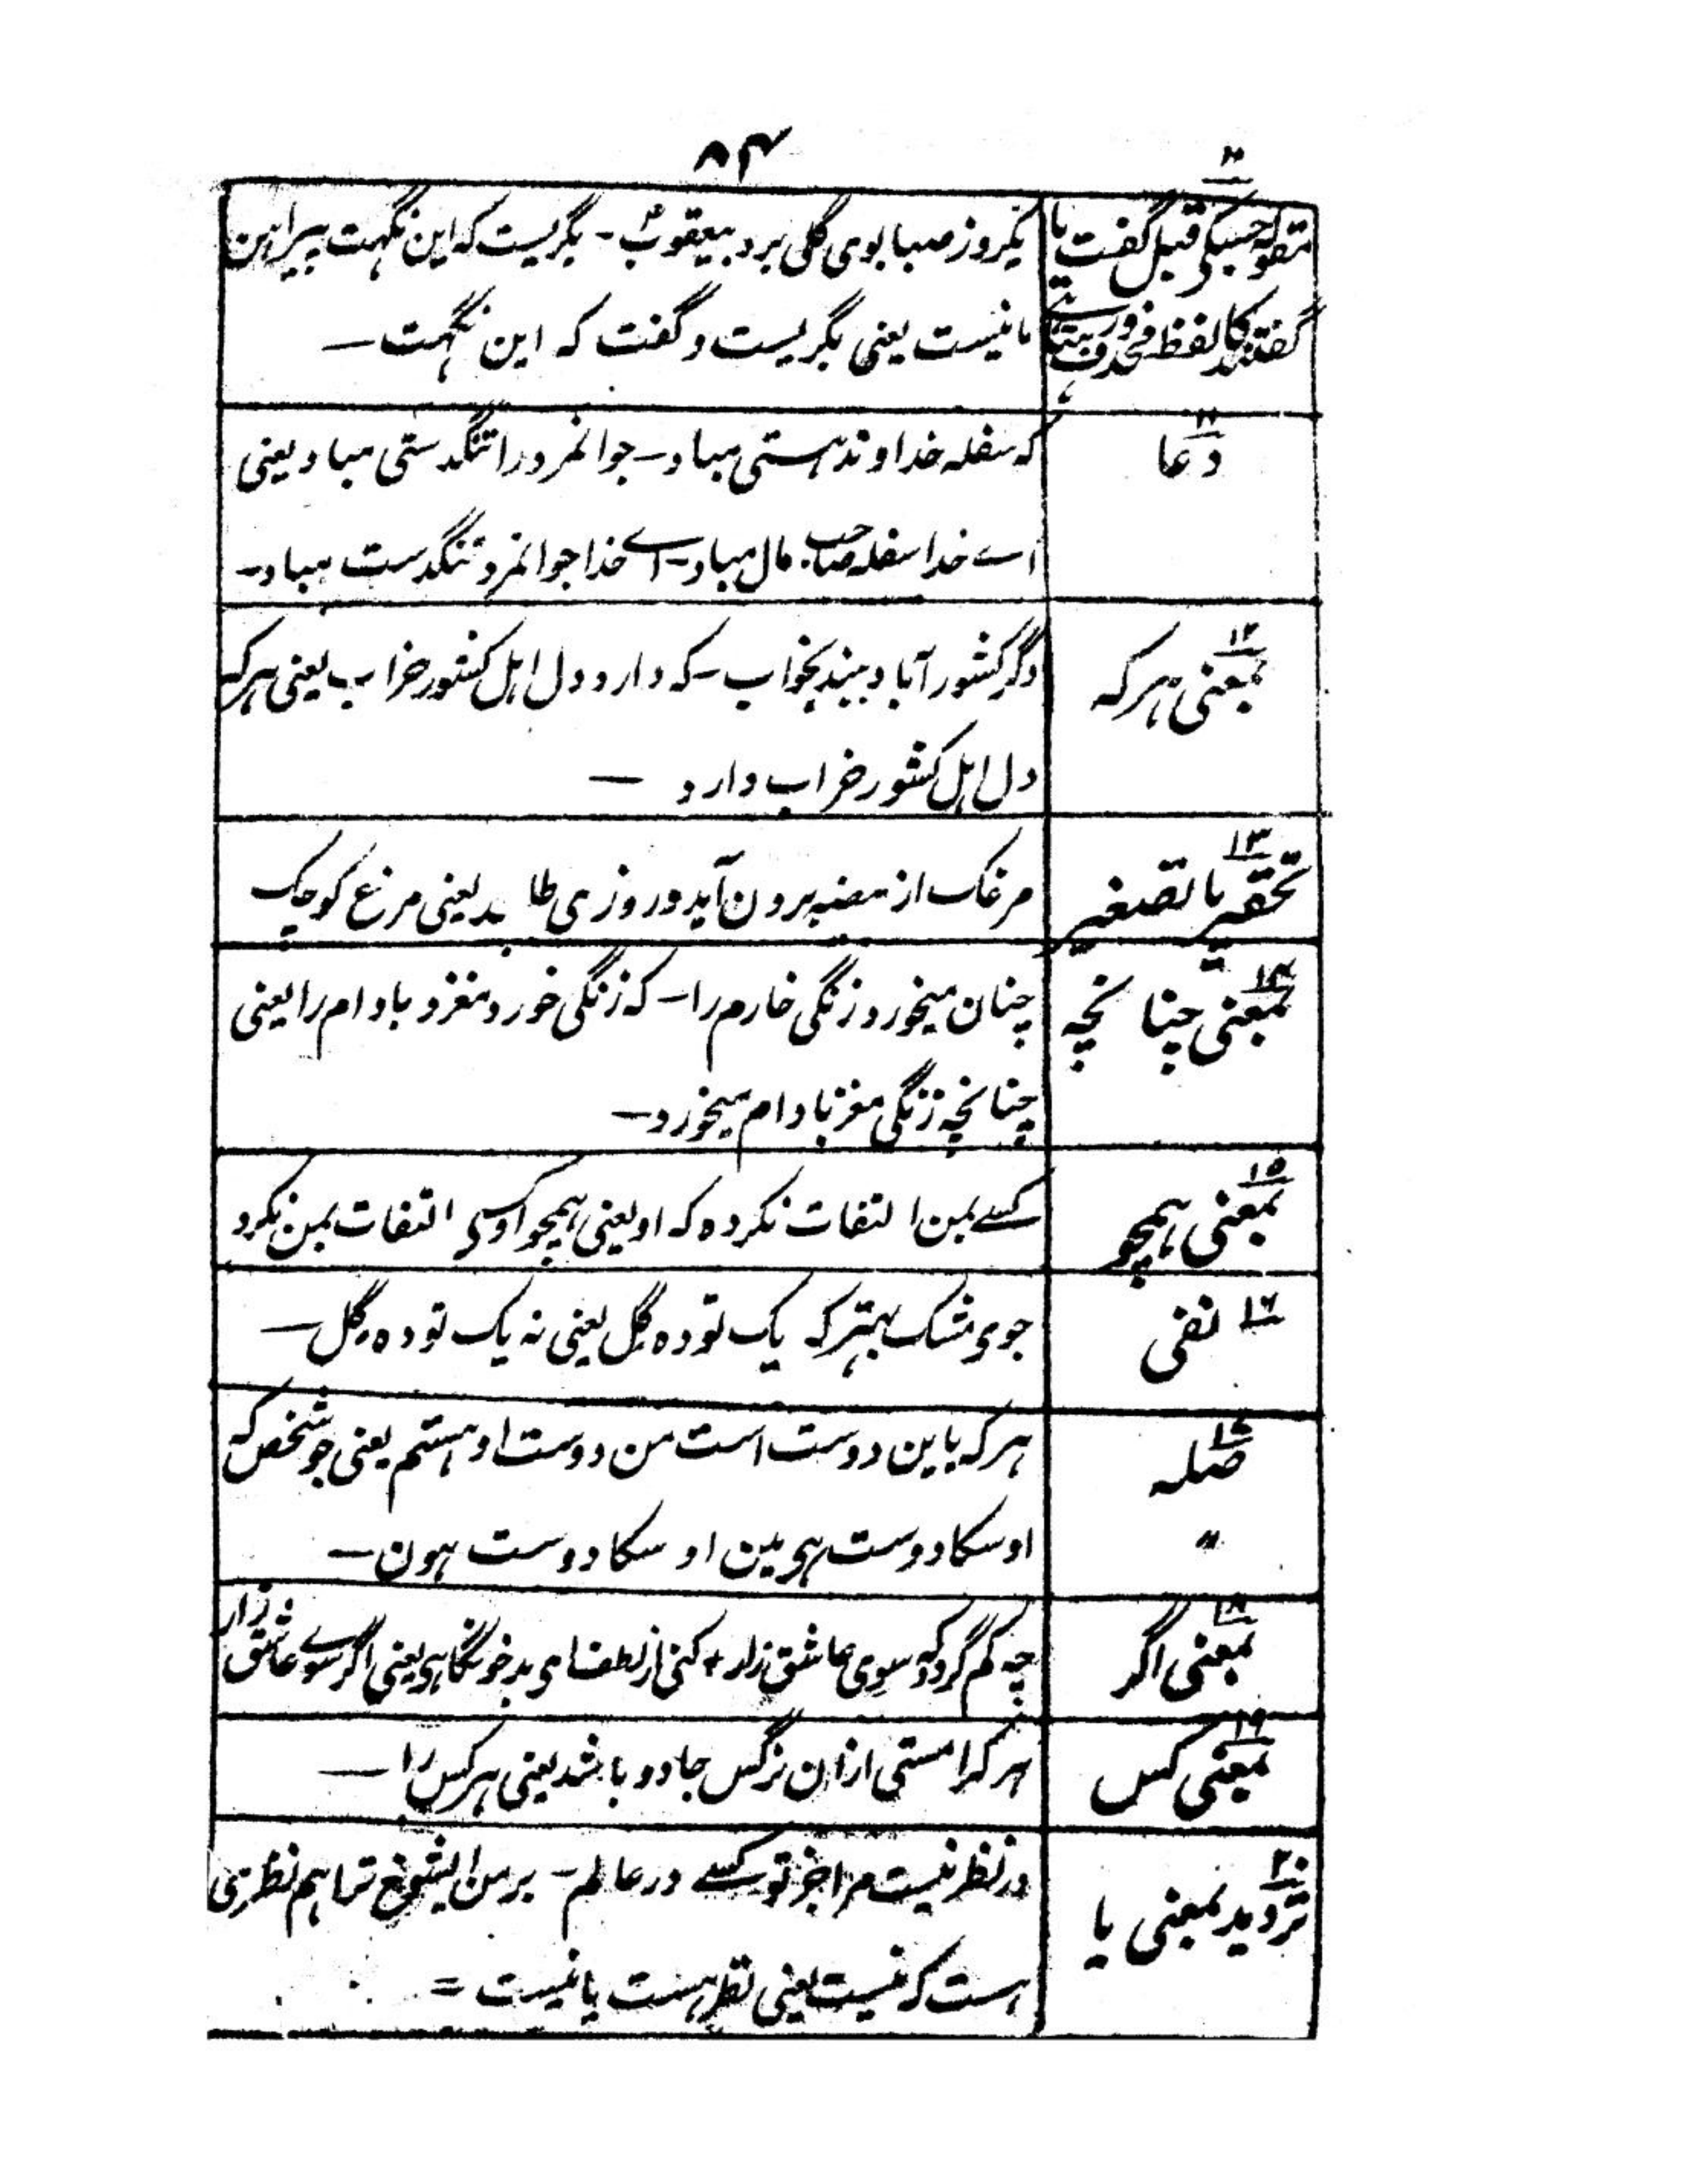 ۸۴
۱۰
مقولہ جسکی قبل گفت یا
گفتند کا لفظ محذوف ہوتا ہے
یکروز صبا بوی گلی برد بیعقوبؑ - بگریست کہ این نگہت پیراہن
ما نیست یعنی بگریست و گفت کہ این نگہت —
۱۱
دعا
کہ سفلہ خداوند ہستی مباد - جوانمرد را تنگدستی مباد یعنی
اے خدا سفلہ صاحب مال مباد - اے خدا جوانمرد تنگدست مباد -
۱۲
بمعنی ہر کہ
دگر کشور آباد بیند بخواب - کہ دارد دل اہل کشور خراب یعنی ہر کہ
دل اہل کشور خراب دارد —
۱۳
تحقیر یا تصغیر
مرغک از بیضہ برون آید و روزی طلبد یعنی مرغ کوچک
۱۴
بمعنی چنانچہ
چنان میخورد زنگی خام را - کہ زنگی خورد مغز و بادام را یعنی
چنانچہ زنگی مغز بادام میخورد —
۱۵
بمعنی ہمچو
کسے بمن التفات نکردہ کہ او یعنی ہمچو او کسی التفات بمن نکرد
۱۶ نفی
جوی مشک بہتر کہ یک تودہ گِل یعنی نہ یک تودہ گِل —
۱۷
صلہ
〃
ہر کہ باین دوست است من دوست او ہستم یعنی جو شخص کہ
اوسکا دوست ہی مین اوسکا دوست ہون —
۱۸
بمعنی اگر
چہ کم گردد کہ سوی عاشق زار + کنی از لطف ای بدخو نگاہی یعنی اگر سوے عاشق زار
۱۹
بمعنی کس
ہر کرا مستی ازان نرگس جادو باشد یعنی ہر کس را —
۲۰
تردید بمعنی یا
در نظر نیست مرا جز تو کسے در عالم - بر من ایشوخ ترا ہم نظری
ہست کہ نیست یعنی نظر ہست یا نیست =